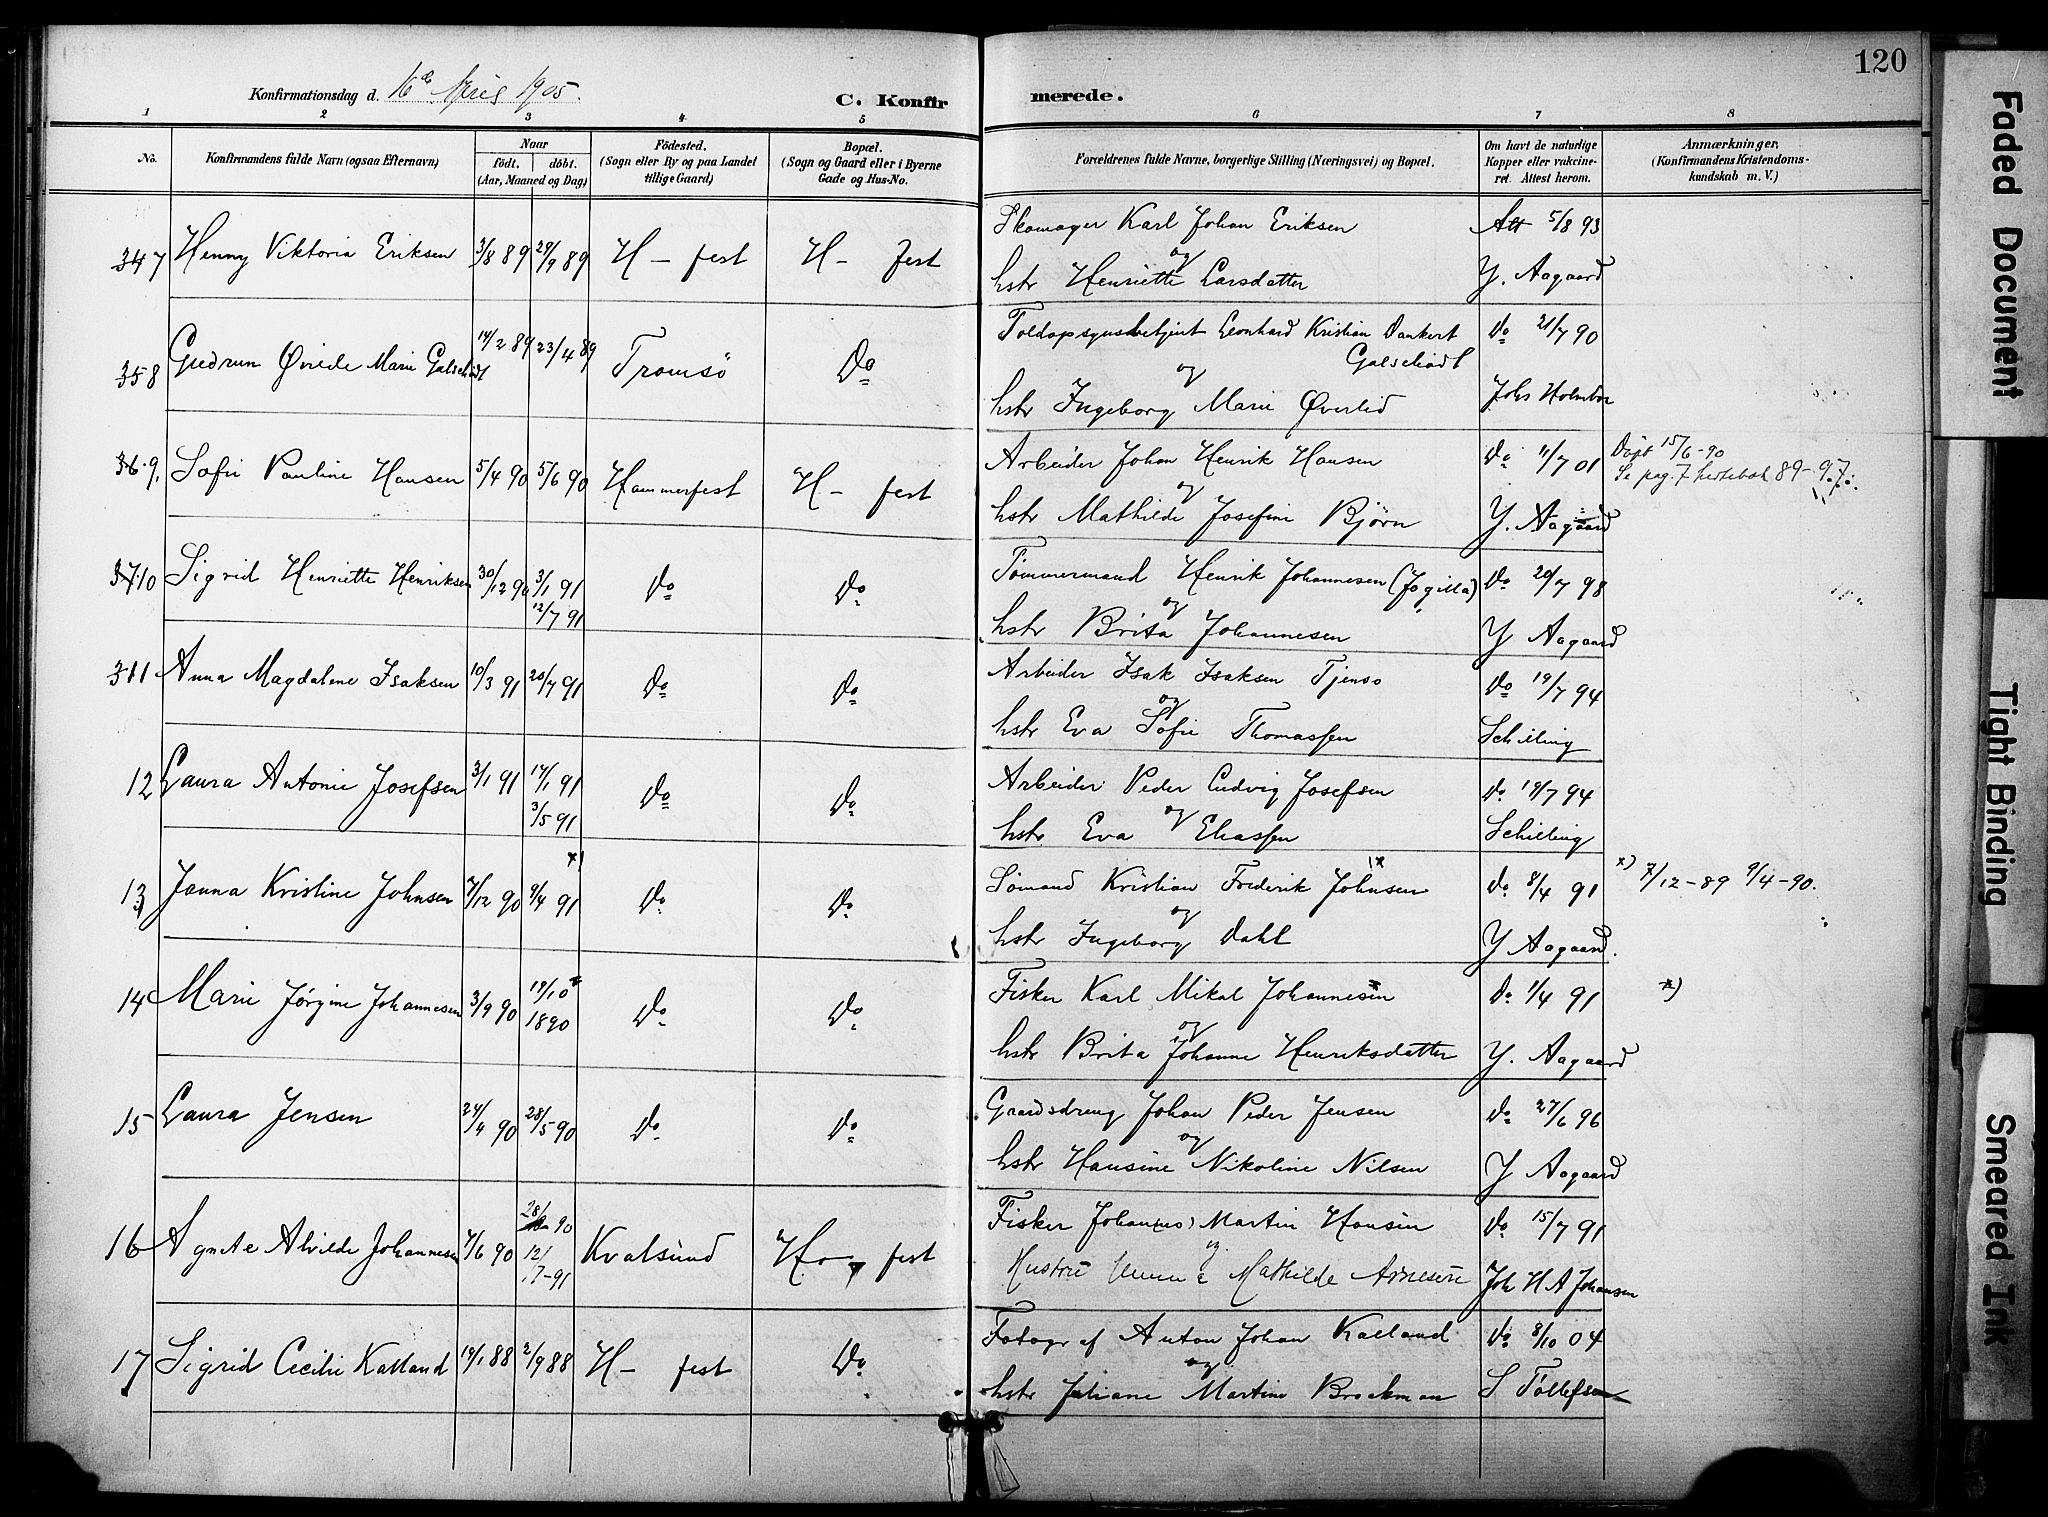 120
Konfirmationsdag d. 16de April 1905.
C. Konfirmerede.
1 2 3 4 5 6 7 8
No.
Konfirmandens fulde Navn (ogsaa Efternavn)
Naar
født. døbt.
(Aar, Maaned og Dag)
Fødested.
(Sogn eller By og paa Landet
tillige Gaard)
Bopæl.
(Sogn og Gaard eller i Byerne
Gade og Hus-No.
Forældrenes fulde Navne, borgerlige Stilling (Næringsvei) og Bopæl.
Om havt de naturlige
Kopper eller vakcine-
ret. Attest herom.
Anmærkninger.
(Konfirmandens Kristendoms-
kundskab m. V.)
347 Henny Viktoria Eriksen 3/8 89 29/9 89 H - fest H - fest Skomager Karl Johan Eriksen Att 5/8 93
og
hstr Henriette Larsdatter Y. Aagaard
358 Gudrun Øvrede Marie Galschiødt 14/2 89 23/4 89 Tromsö Do Toldopsynsbetjent Leonhard Kristian Dankert Do 21/7 90
Galschiødt
og
hstr Ingeborg Marie Øverlid Johs Holmboe
36.9. Sofie Pauline Hansen 5/4 90 5/6 90 Hammerfest H - fest Arbeider Johan Henrik Hansen Do 11/7 01 Døpt 15/6-90
Se pag. 7 89-97.
og
hstr Mathilde Josefine Bjørn Y. Aagaard
37.10 Sigrid Henriette Henriksen 30/12 90 3/1 91 Do Do Tömmermand Henrik Johannesen (Jogilla) Do 20/7 98
12/7 91
og
hstr Brita Johannesen Y Aagaard
311 Anna Magdalene Isaksen 10/3 91 20/7 91 Do Do Arbeider Isak Isaksen Tjenso Do 19/7 94
og
hstr Eva Sofie Thomassen Schilling
12 Laura Antonie Josefsen 3/1 91 17/1 91 Do Do Arbeider Peder Ludvig Josefsen Do 19/7 94
3/5 91
og
hstr Eva Eliassen Schilling
13 Janna Kristine Johnsen 7/12 90 9/4 91 x) Do Do Sömand Kristian Frederik Johnsen x Do 8/4 91 x) 7/12-89 9/4-90.
og
hstr Ingeborg Dahl Y Aagaard.
14 Marie Jørgine Johannesen 3/9 90 19/10 x Do Do Fisker Karl Mikal Johannesen x Do 1/4 91 x)
1890
og
hstr Brita Johanne Henriksdatter Y. Aagaard
15 Laura Jensen 24/4 90 28/5 90 Do Do Gaardsdreng Johan Peder Jensen Do 27/6 96
og
hstr Hansine Nikoline Nilsen Y Aagaard
16 Agnete Alvilde Johannesen 7/6 90 28/ 90 Kvalsund H - fest Fisker Johan(nes) Martin Hansen Do 15/7 91
12/7-91
og
Hustru Mathilde Arnesen Joh H A Johansen
17 Sigrid Cecilie Kalland 19/1 88 2/9 88 H - fest Do Fotograf Anton Johan Kalland Do 8/10 04
og
hstr Juliane Martine Brockman S Tollefsen
Faded Document
Tight Binding
Smeared Ink